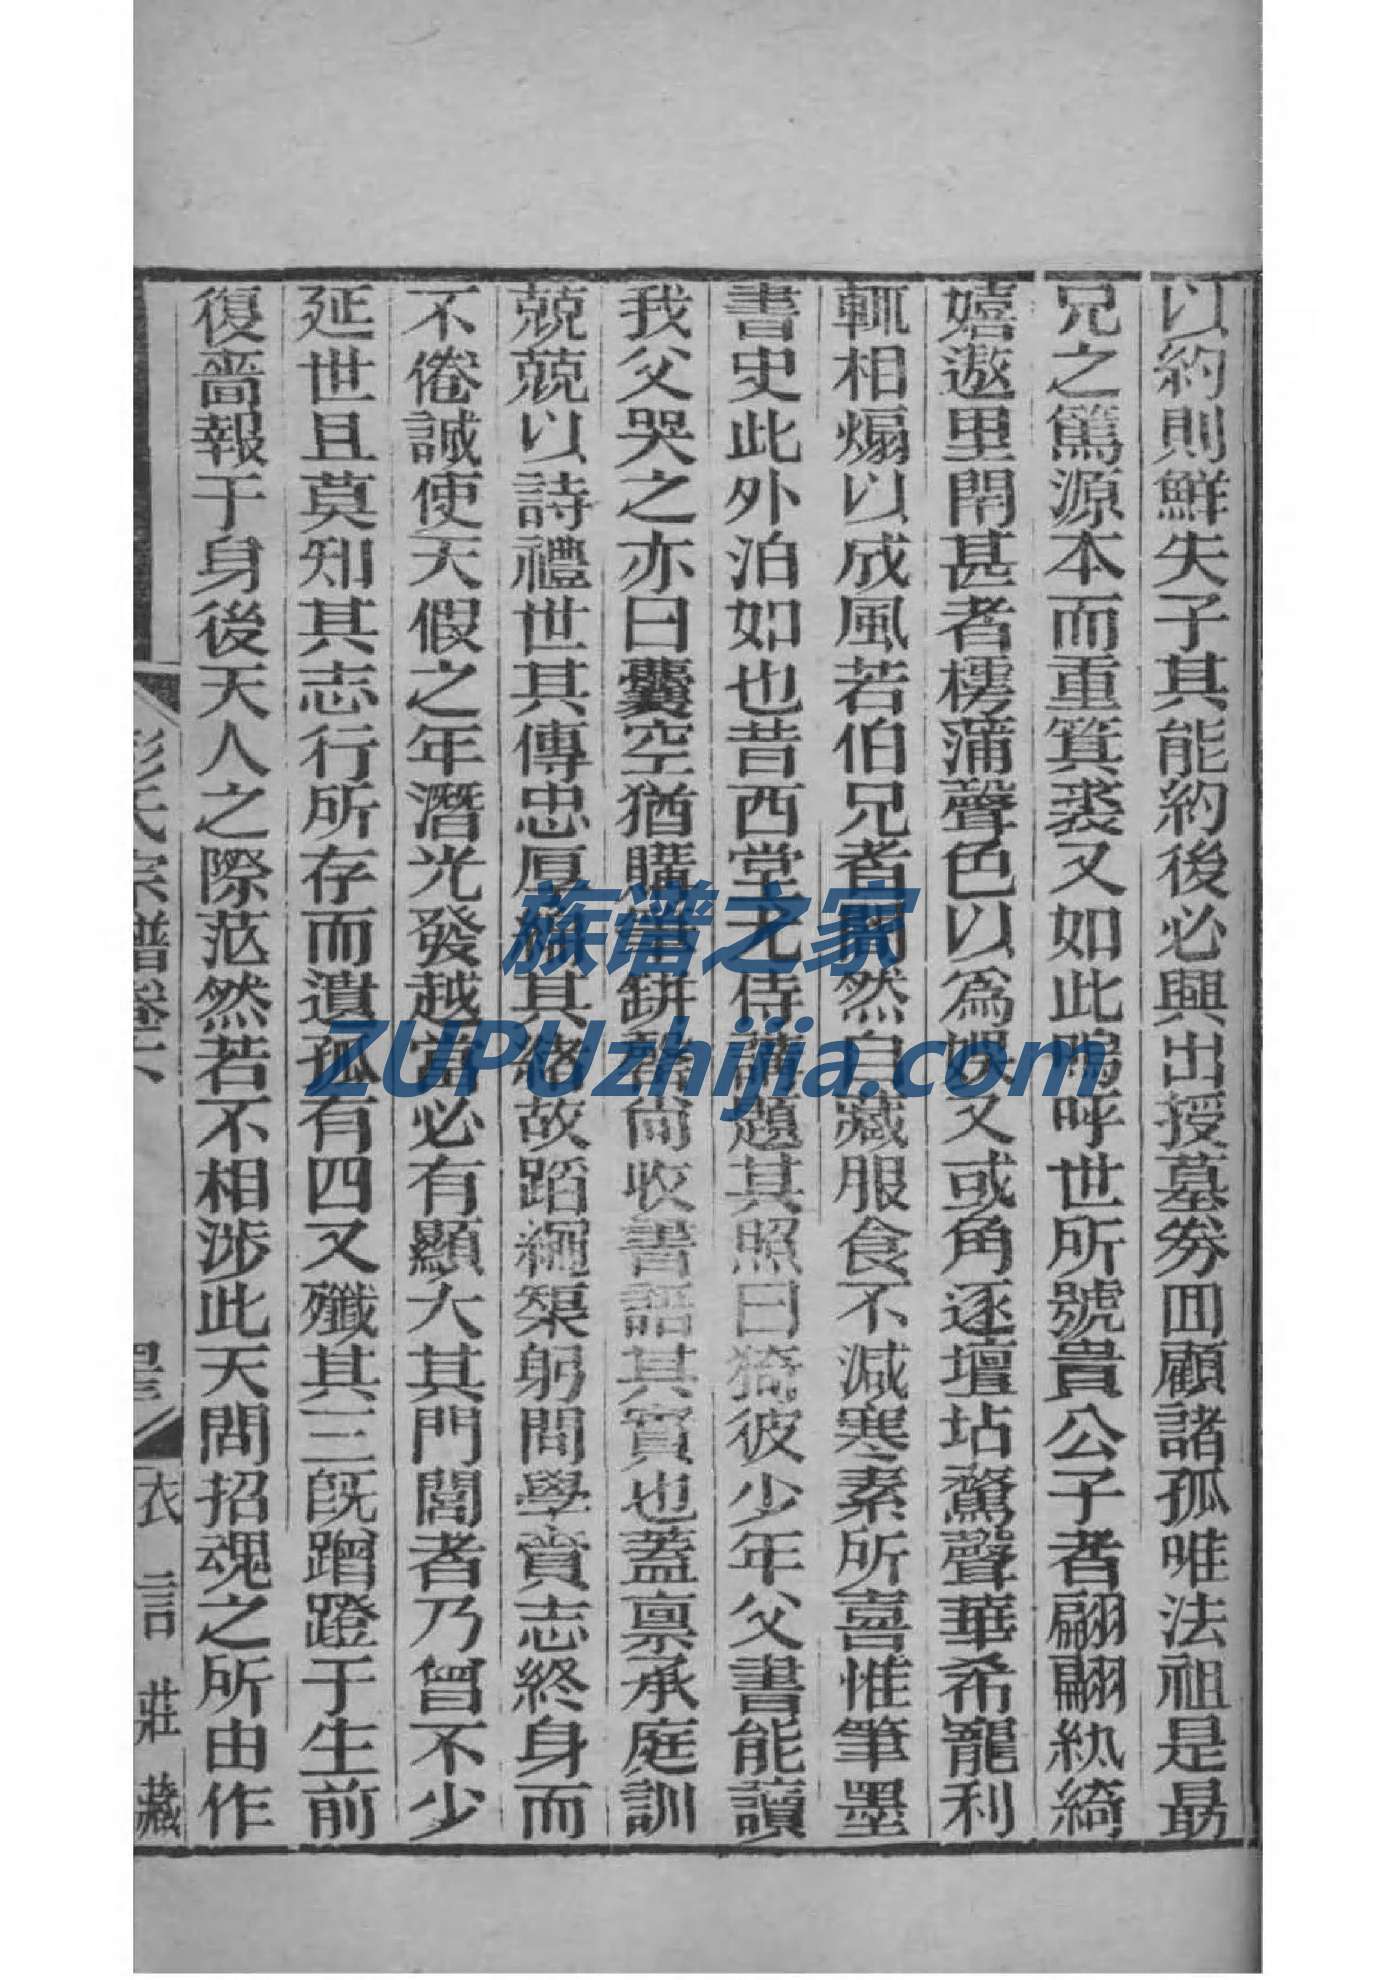 以約則鮮失子其能約後必興出授墓劵囬顧諸孤唯法祖是勗
兄之篤源本而重箕裘又如此嗚呼世所號貴公子者翩翩紈綺
嬉遨里閈甚者樗蒲聲色以為娛又或角逐壇坫驚聲華希寵利
輒相煽以成風若伯兄者闇然自藏服食不減寒素所喜惟筆墨
書史此外泊如也昔西堂尤侍講題其照曰猗彼少年父書能讀
我父哭之亦曰囊空猶購罄尚收書語其實也蓋禀承庭訓
兢兢以詩禮世其傳忠厚族其緒故蹈繩榘躬問學賫志終身而
不倦誠使天假之年潛光發越當必有顯大其門閭者乃曾不少
延世且莫知其志行所存而遺孤有四又殲其三旣蹭蹬于生前
復嗇報于身後天人之際范然若不相涉此天問招魂之所由作
彭氏宗譜卷六
衣言莊藏
族谱之家
ZUPUzhijia.com